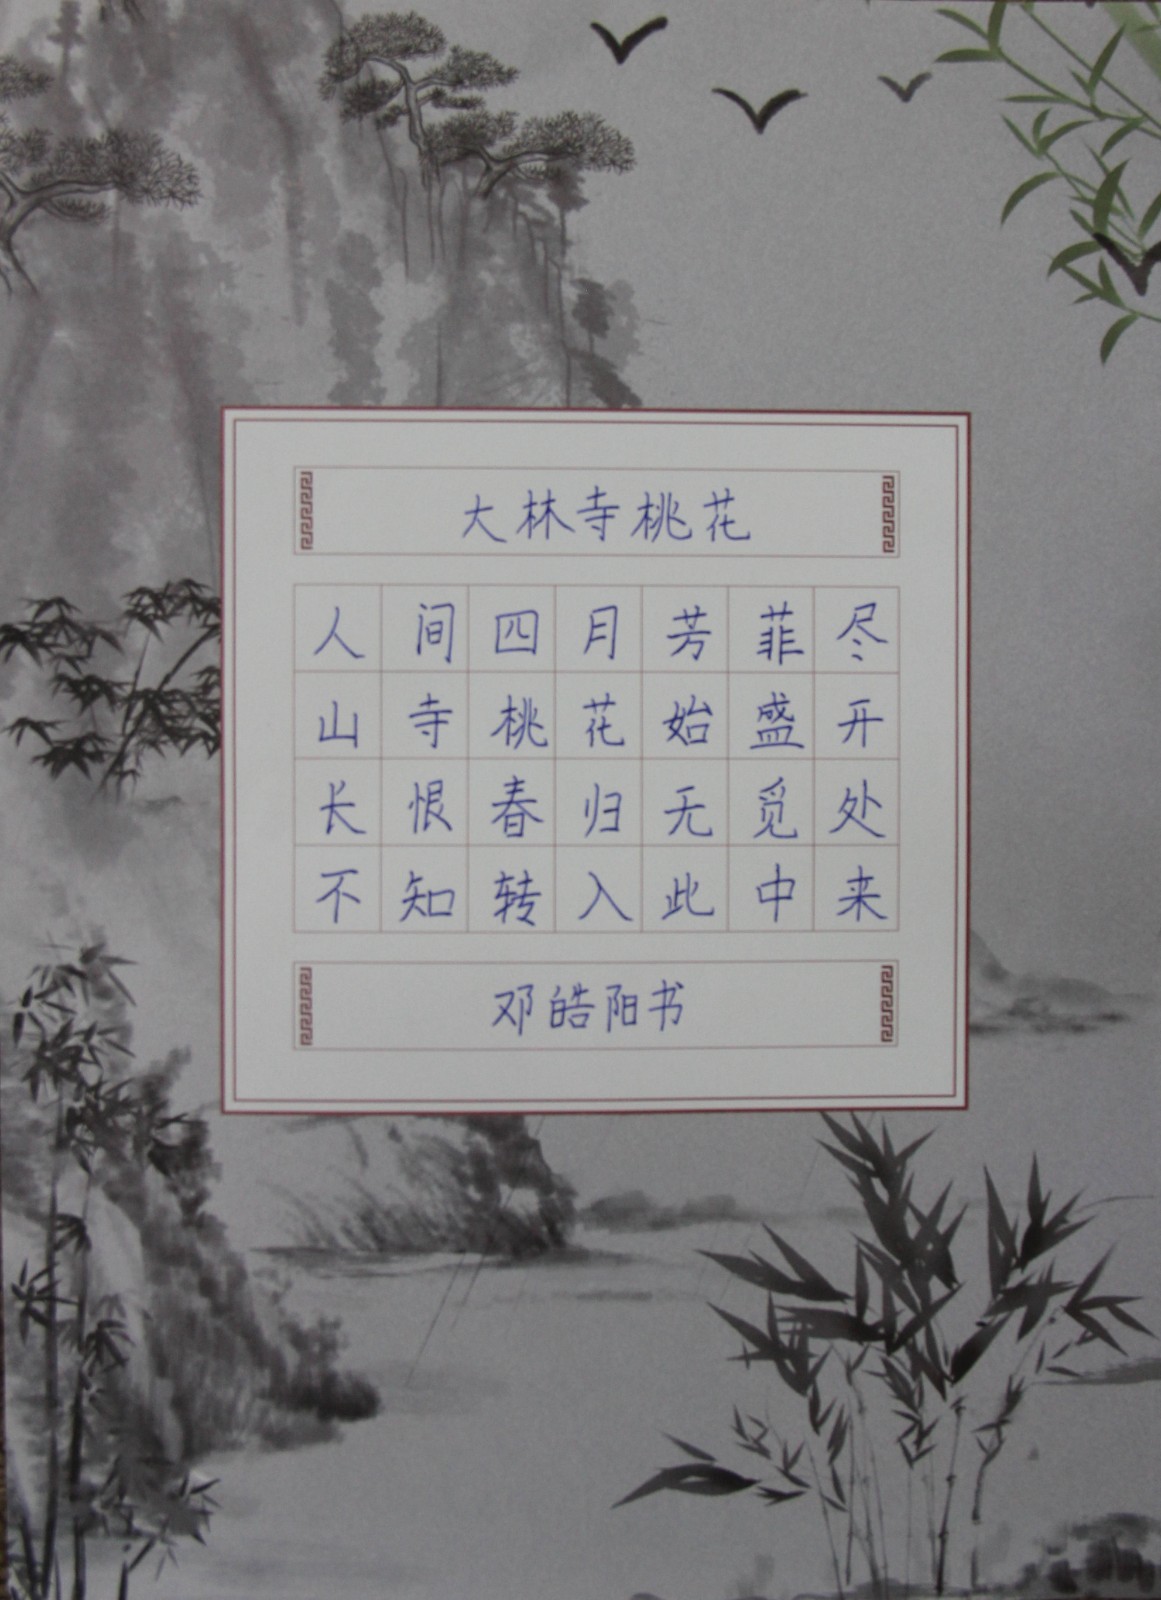 大林寺桃花
人间四月芳菲尽
山寺桃花始盛开
长恨春归无觅处
不知转入此中来
邓皓阳书